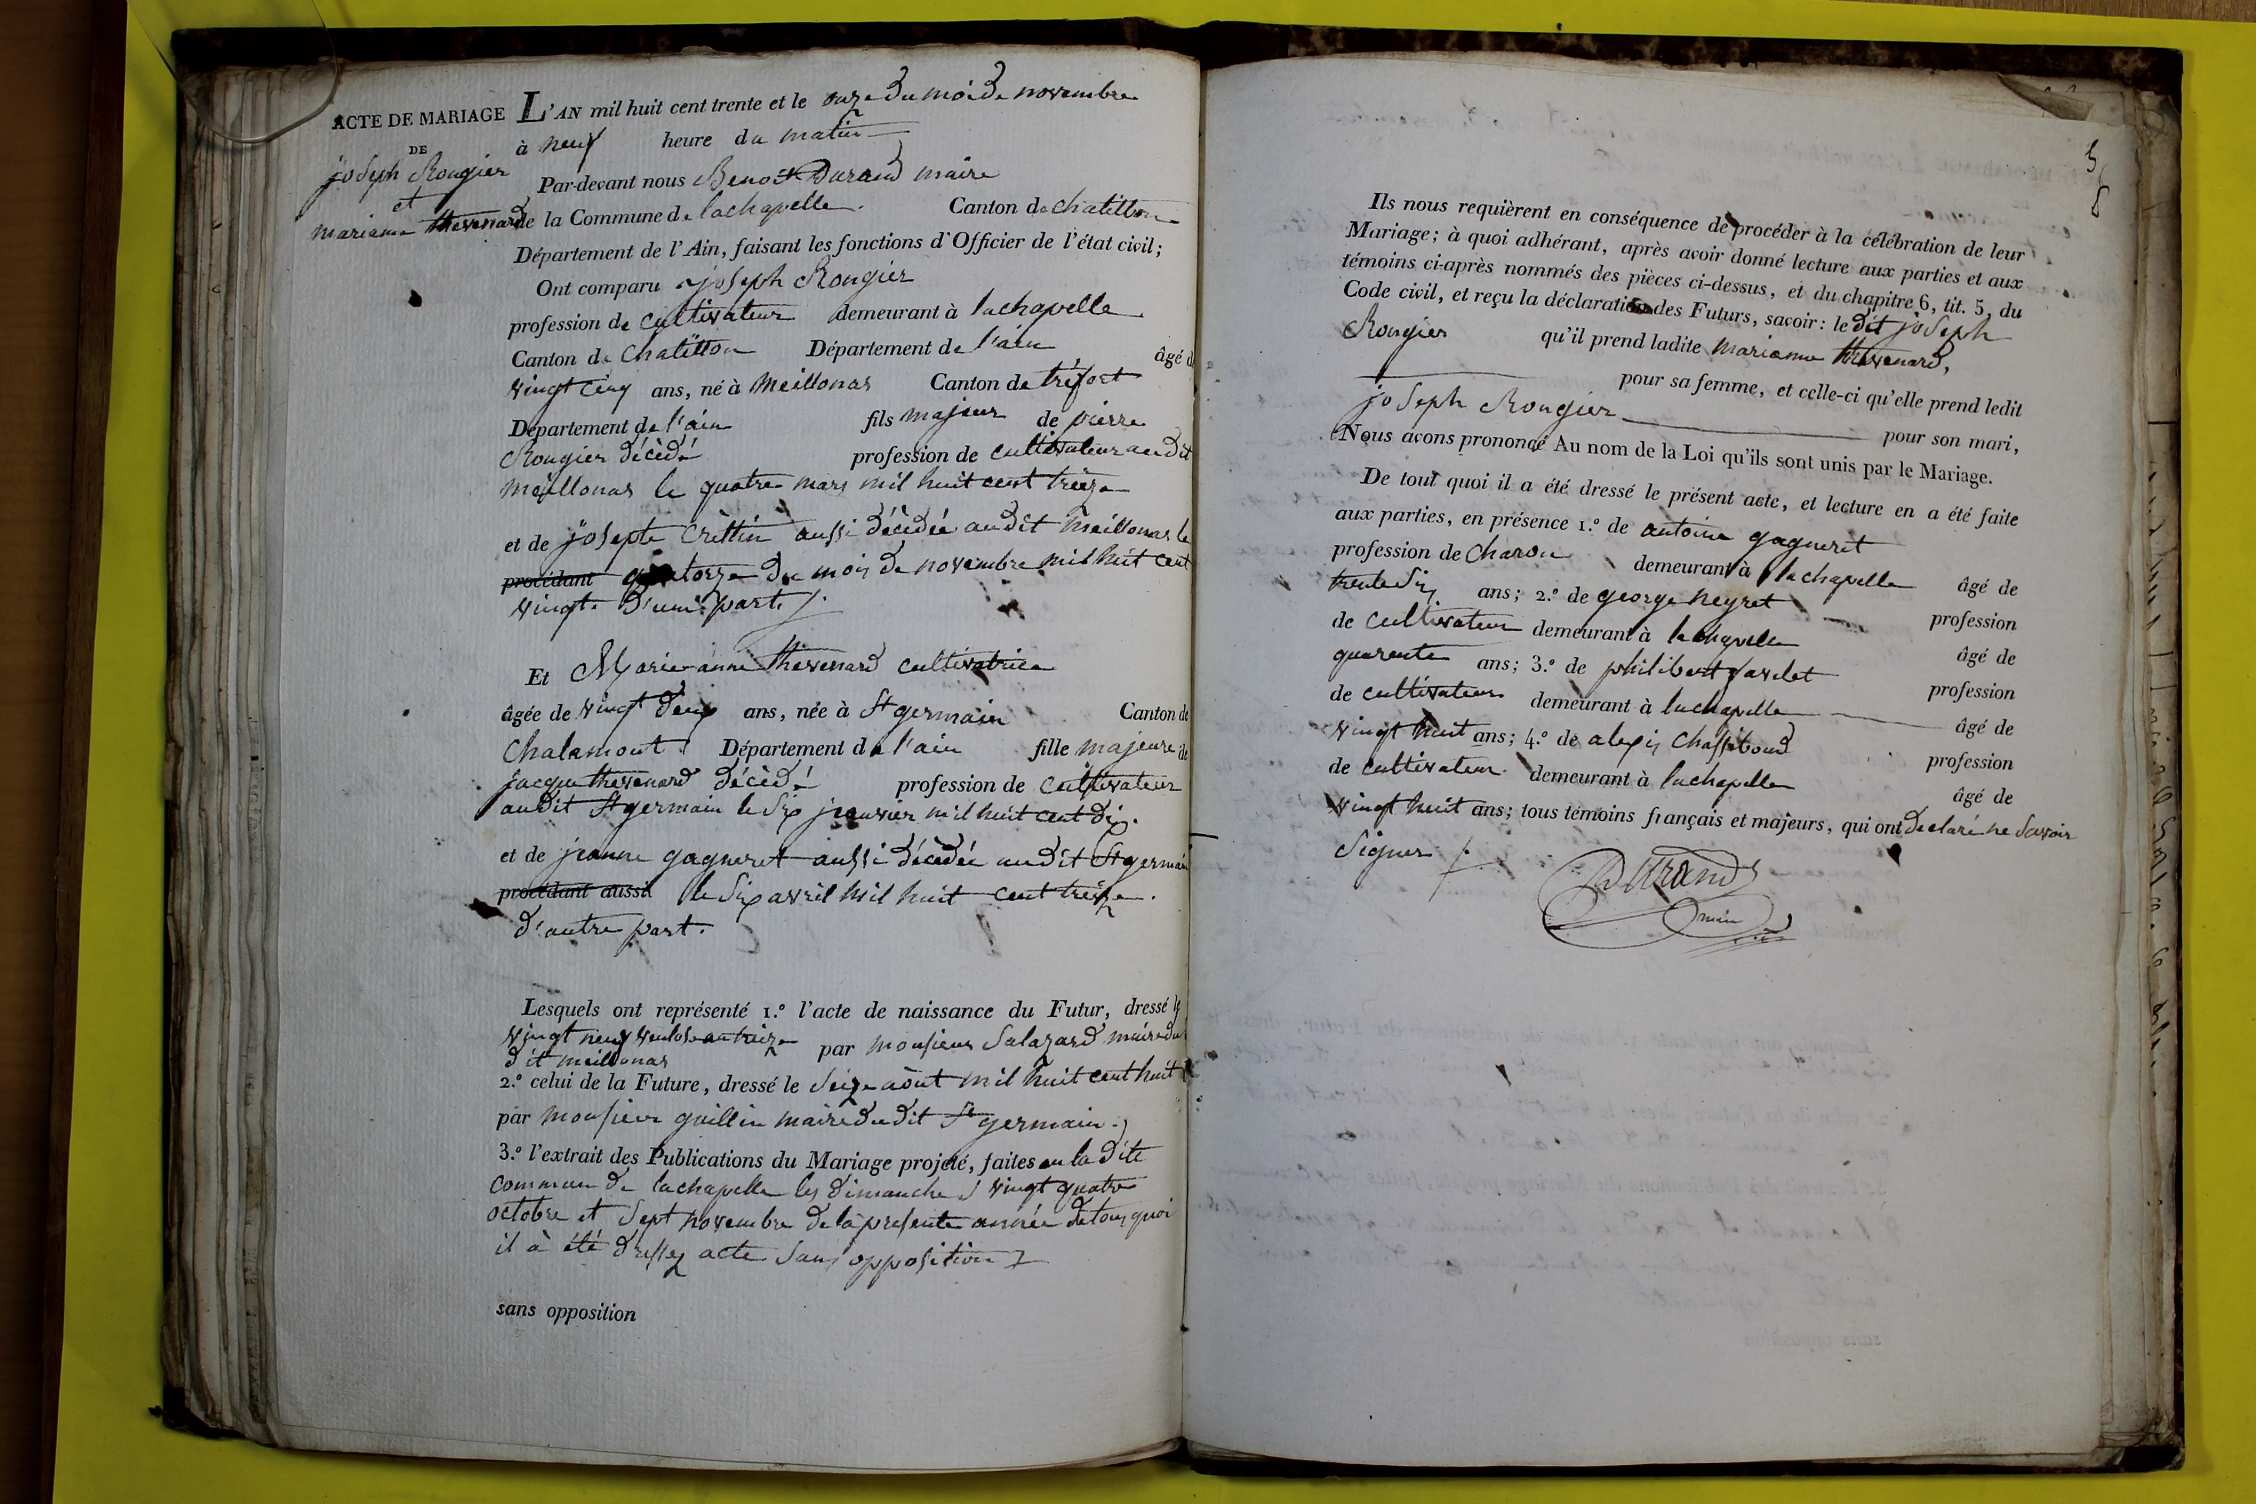 ACTE DE MARIAGE L'AN mil huit cent trente et le onze du moi de novembre
DE à neuf heure du matin
joseph Rougier
Par-devant nous Benoit Durand maire
et
marianne thevenard de la Commune de lachapelle. Canton de chatillon
Département de l'Ain, faisant les fonctions d'Officier de l'état civil;
Ont comparu joseph Rougier
profession de cultivateur demeurant à lachapelle
Canton de Chatillon Département de l'ain âgé d
vingt cinq ans, né à Meillonas Canton de tréfort
Département de l'ain fils majeur de pierre
Rougier décédé profession de cultivateur audit
meillonas le quatre mars mil huit cent treize
et de josepte Crettin aussi décédée audit meillonas le
procédant quatorze du mois de novembre mil huit cent
vingt. d'une part.
Et Marie-anne thevenard cultivatrice
âgée de vingt deux ans, née à St germain Canton de
Chalamont. Département de l'ain fille majeure de
jacque thevenard décédé profession de cultivateur
audit St germain le six janvier mil huit cent dix.
et de jeanne gagneret aussi décédée audit St germain
procédant aussi le six avril mil huit cent treize.
d'autre part.
Lesquels ont représenté 1.º l'acte de naissance du Futur, dressé le
vingt neuf ventose an treize par monsieur Salazard maire du
dit meillonas
2.º celui de la Future, dressé le seize aôut mil huit cent huit
par monsieur guillin maire dudit St germain.
3.º l'extrait des Publications du Mariage projeté, faites en la dite
commun de lachapelle les dimanches vingt quatre
octobre et sept novembre de la presente année de tous quoi
il à été dressez acte sans opposition
sans opposition
Ils nous requièrent en conséquence de procéder à la célébration de leur
Mariage; à quoi adhérant, après avoir donné lecture aux parties et aux
témoins ci-après nommés des pièces ci-dessus, et du chapitre 6, tit. 5, du
Code civil, et reçu la déclaration des Futurs, savoir: le dit joseph
Rougier qu'il prend ladite marianne thevenard,
pour sa femme, et celle-ci qu'elle prend ledit
joseph Rougier pour son mari,
Nous avons prononcé Au nom de la Loi qu'ils sont unis par le Mariage.
De tout quoi il a été dressé le présent acte, et lecture en a été faite
aux parties, en présence 1.º de antoine gagneret
profession de charon demeurant à lachapelle âgé de
trente six ans; 2.º de george neyret profession
de cultivateur demeurant à lachapelle âgé de
quarente ans; 3.º de philibert profession
de cultivateur demeurant à lachapelle âgé de
vingt huit ans; 4.º de alexis Chassiboud profession
de cultivateur demeurant à lachapelle âgé de
vingt huit ans; tous témoins français et majeurs, qui ont declaré ne savoir
signer
Durand
maire